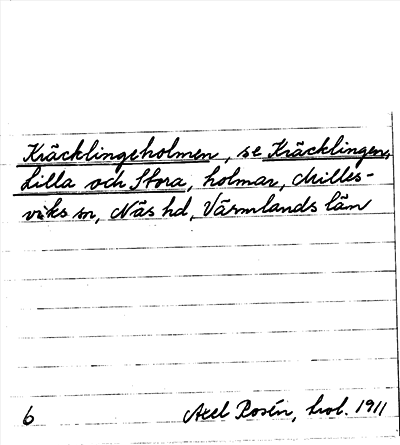 Kräcklingeholmen, se Kräcklingen,
Lilla och Stora, holmar, Milles-
viks sn, Näs hd, Värmlands län
6 Axel Rosén, hol. 1911